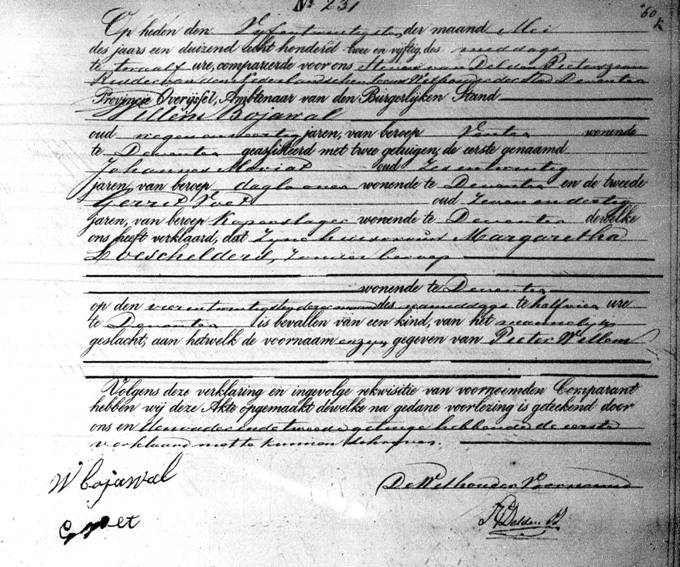 No 231
Op heden den Vyfentwintigsten der maand Mei
des jaars een duizend acht honderd twee en vyftig, des middags
te twaalf ure, compareerde voor ons van Delden Pieterszoon
Ridder van den Nederlandschen Leeuw Wethouder der Stad Deventer
Provincie Overijssel, Ambtenaar van den Burgerlijken Stand
Willem Bojawal
oud negenenveertig jaren, van beroep Venter wonende
te Deventer geassisteerd met twee getuigen; de eerste genaamd
Johannes oud
jaren, van beroep daglooner wonende te Deventer en de tweede
Gerrit Poet oud Zevenendertig
jaren, van beroep Koperslager wonende te Deventer dewelke
ons heeft verklaard, dat Zyne huisvrouw Margaretha
zonder beroep
wonende te Deventer
op den vierentwintigsten dezer maand des namiddags te half vier ure
te Deventer is bevallen van een kind, van het mannelyk
geslacht, aan hetwelk de voornaam en zyn gegeven van Pieter Willem
Volgens deze verklaring en ingevolge rekwisitie van voornoemden Comparant
hebben wij deze Akte opgemaakt dewelke na gedane voorlezing is geteekend door
ons en den vader en de tweede getuige hebbende de eerste
verklaard niet te kunnen schryven.
W Bojawal
De Wethouder Voornoemd
G Poet
V Delden P